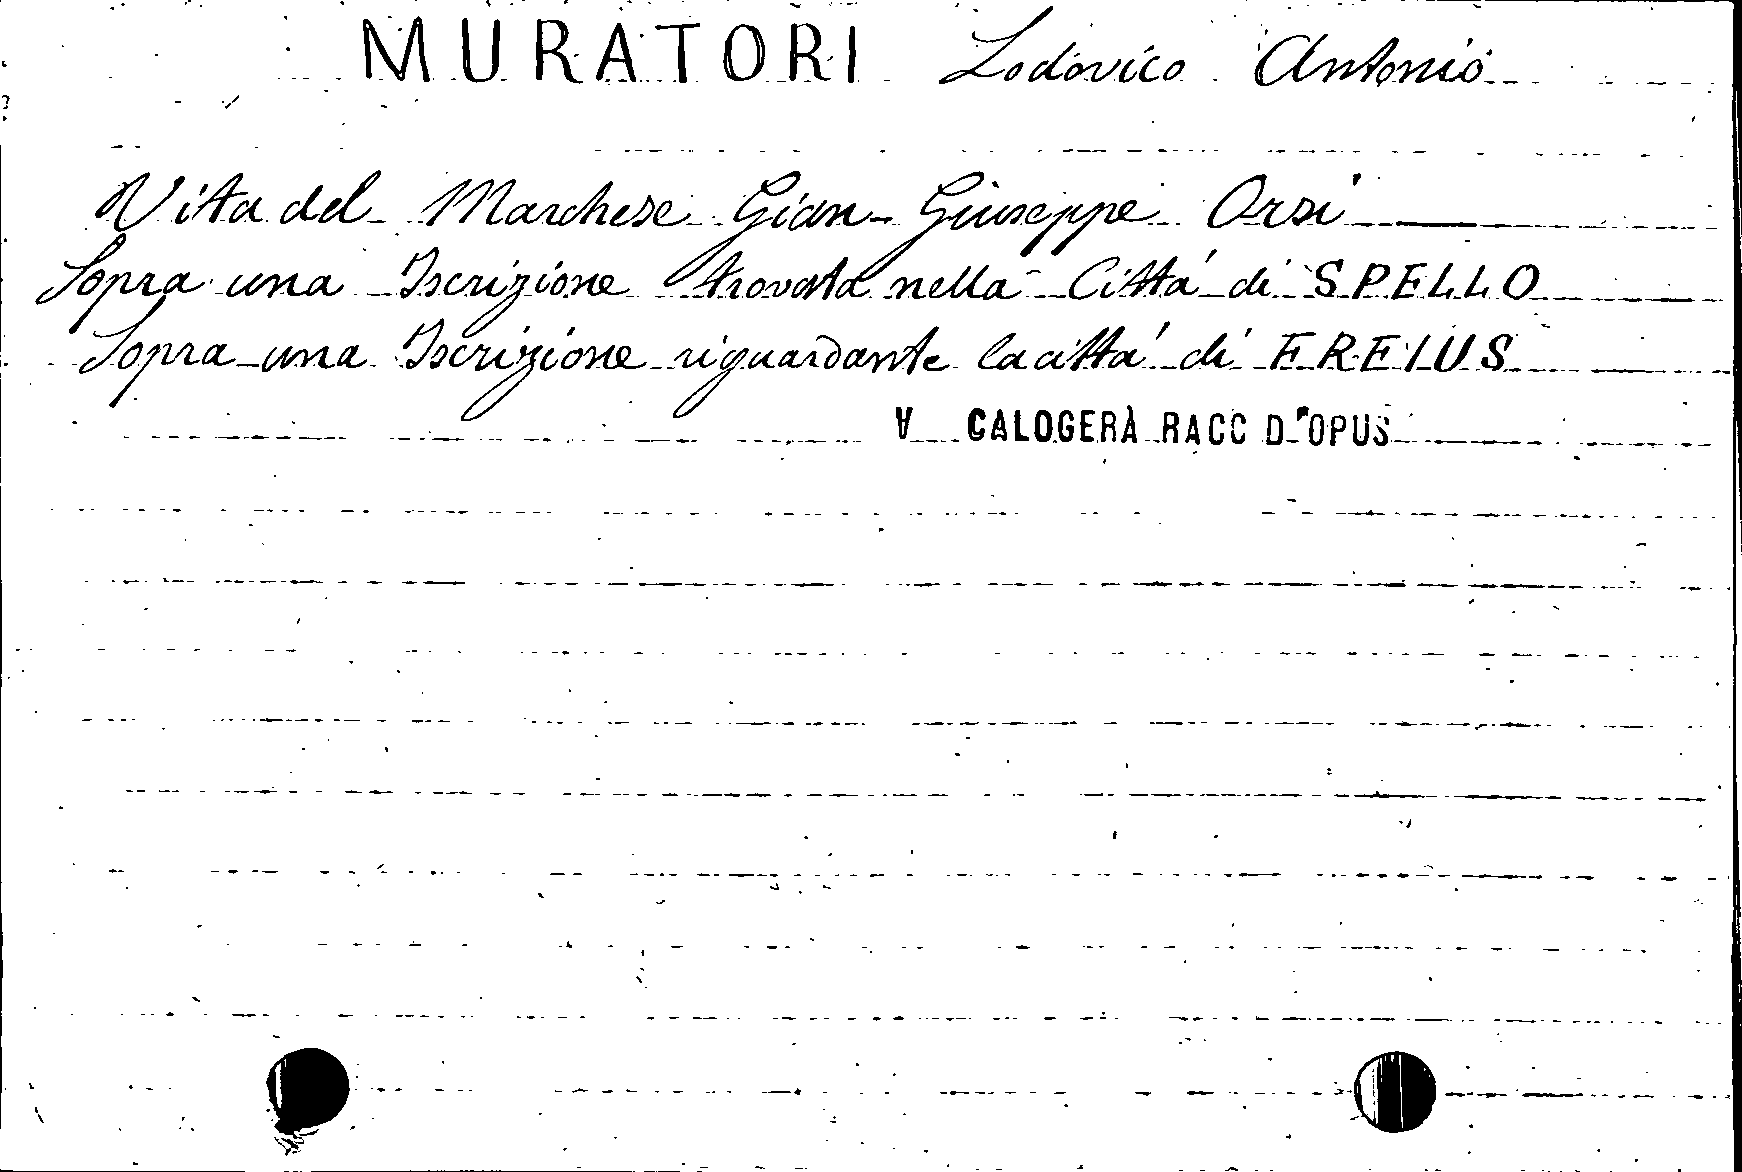 MURATORI Lodovico Antonio
Vita del Marchese Gian-Giuseppe Orsi
Sopra una Iscrizione trovata nella Città di SPELLO
Sopra una Iscrizione riguardante la città di FREIUS
V CALOGERÀ RACC D'OPUS